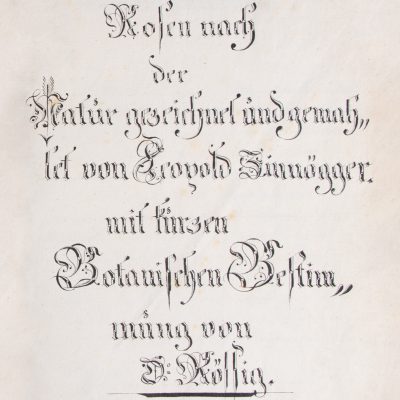 Rosen nach
der
Natúr gezeichnet úndgemah„
let von Leopold Zinnögger.
mit kúrzen
Botanischen Bestim„
múng von
D: Rössig.